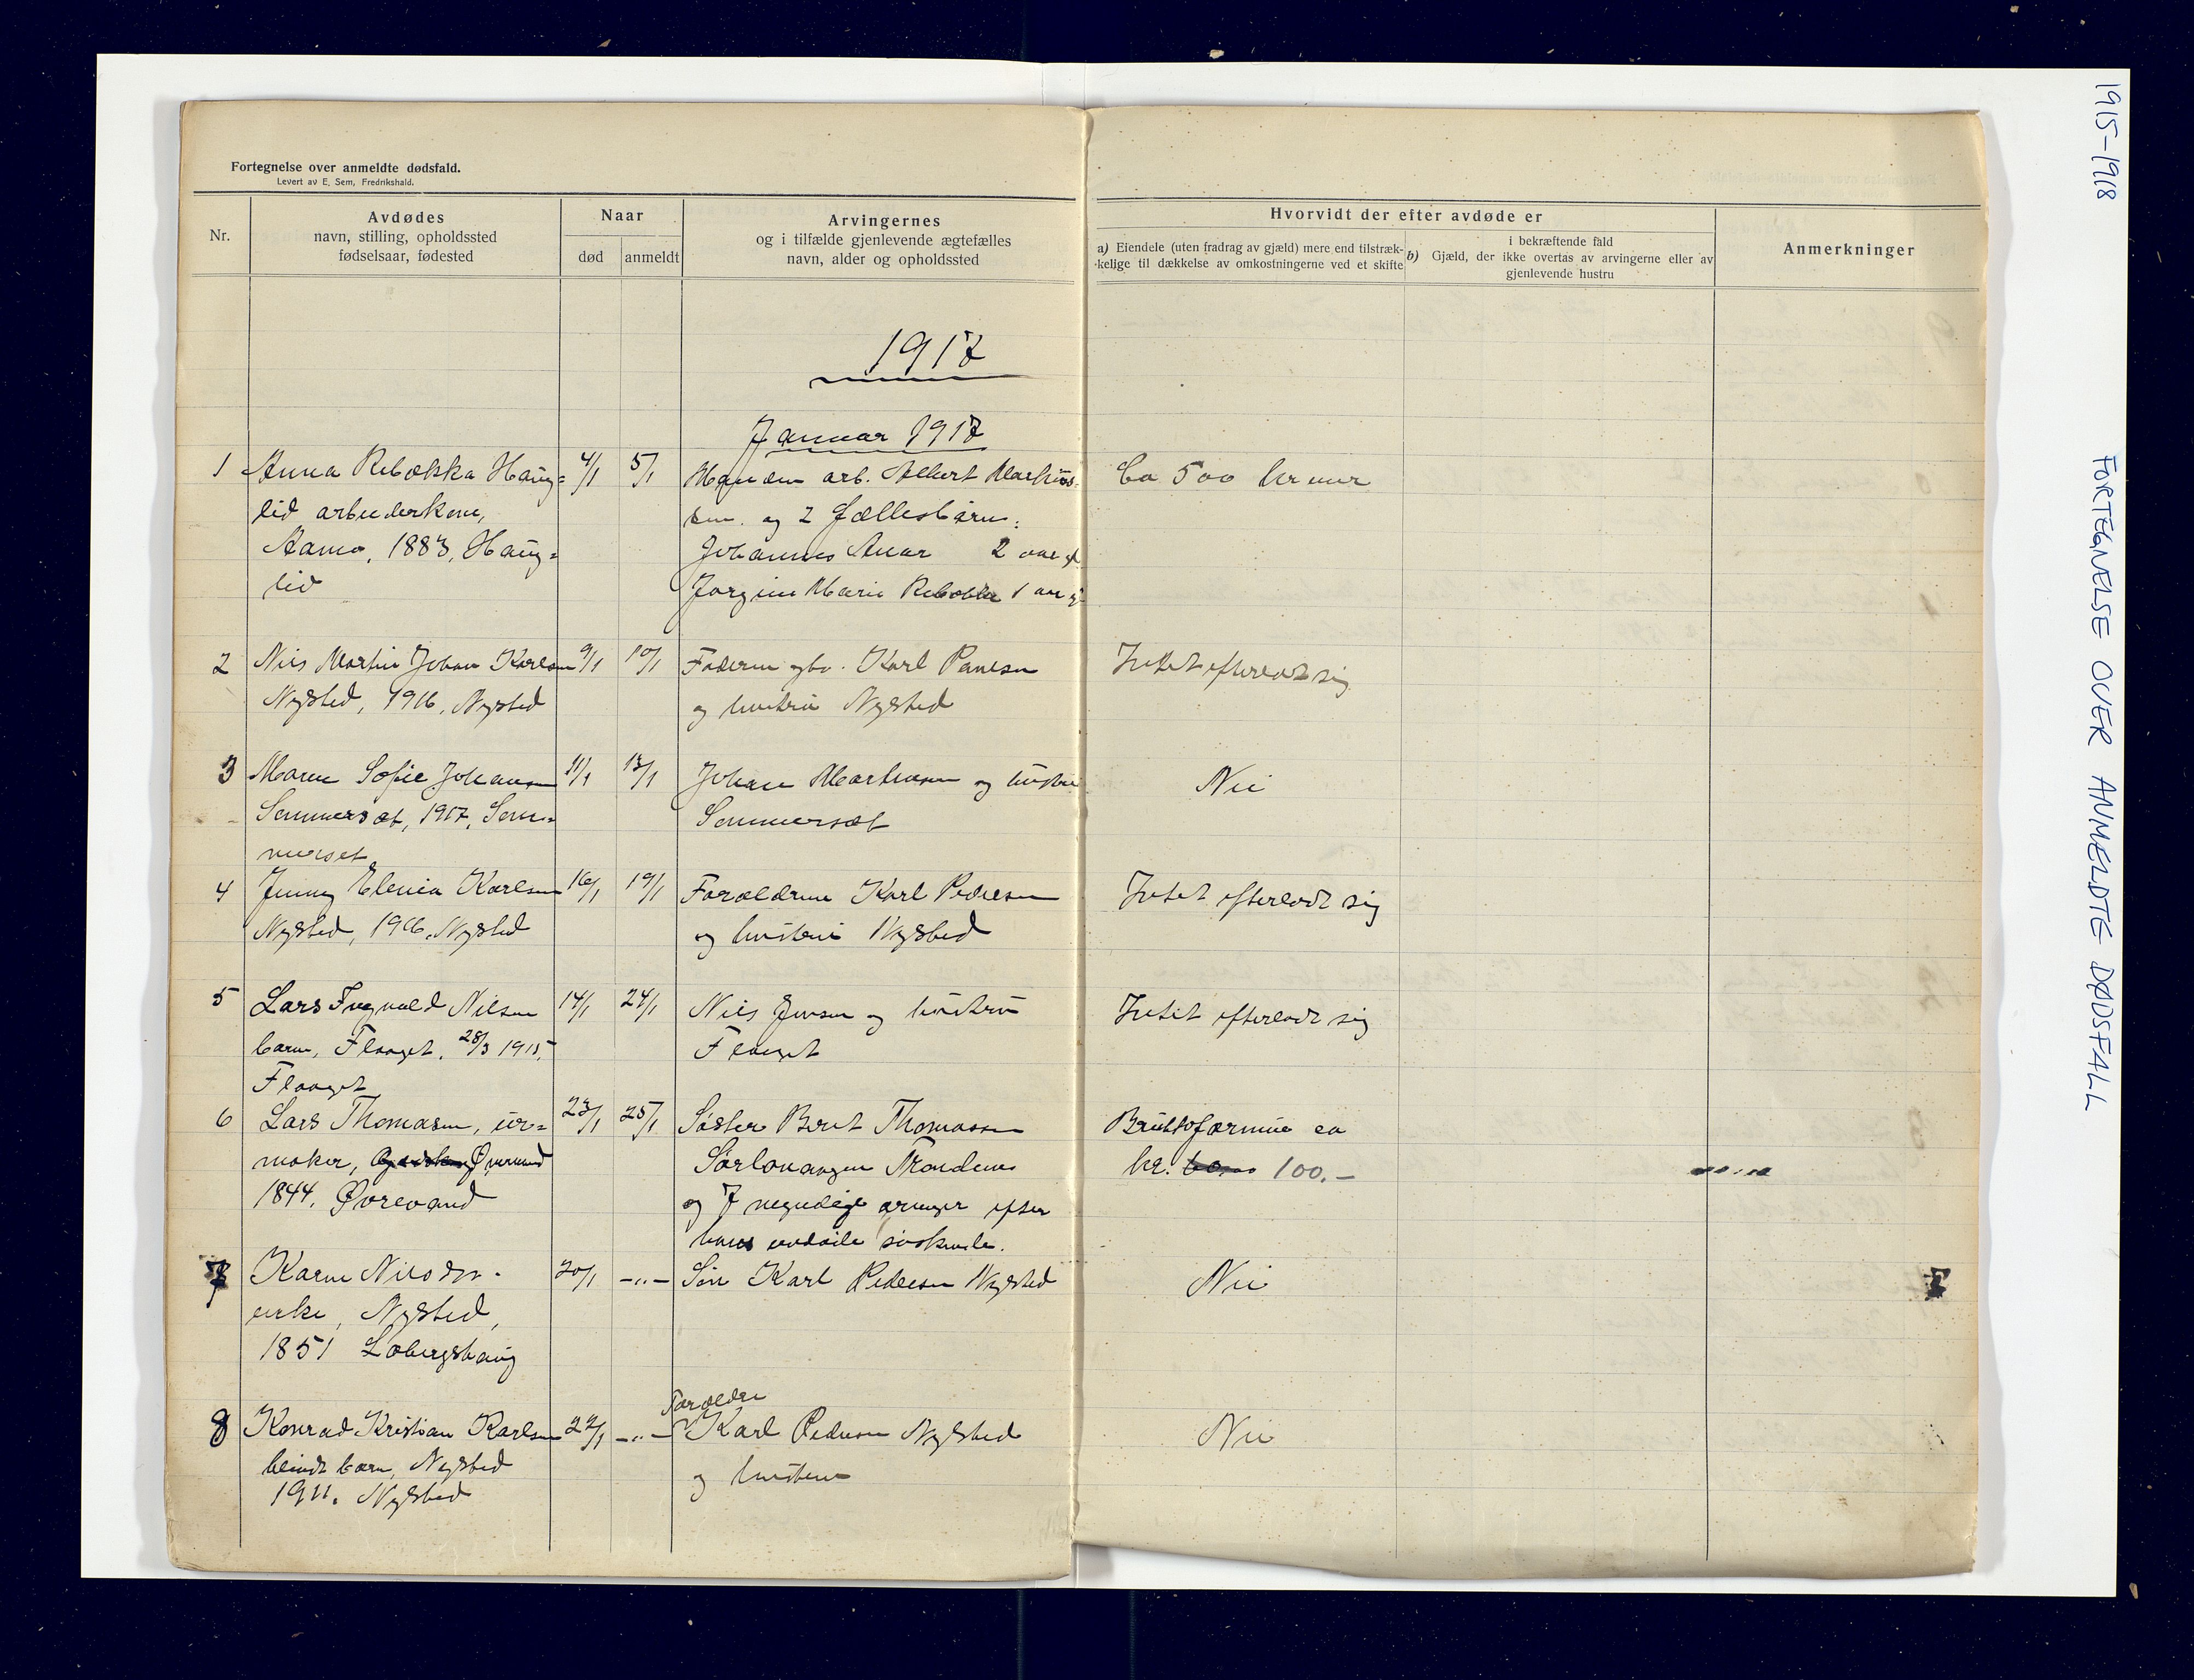 Fortegnelse over anmeldte dødsfald.
Levert av E. Sem, Fredrikshald.
Nr.
Avdødes
navn, stilling, opholdssted
fødselsaar, fødested
Naar
død
anmeldt
Arvingernes
og i tilfælde gjenlevende ægtefælles
navn, alder og opholdssted
Hvorvidt der efter avdøde er
a) Eiendele (uten fradrag av gjæld) mere end tilstræk-
kelige til dækkelse av omkostningerne ved et skifte
i bekræftende fald
b) Gjæld, der ikke overtas av arvingerne eller av
gjenlevende hustru
Anmerkninger
1917
Januar 1917
1 Anna Rebekka Haug= 4/1 5/1 Manden arb. Albert Martins= Ca 500 kroner
lid arbeiderkone, sen. og 2 fællesbarn:
1883, Haug= Johannes Anar 2 aar gl
lid Jorgine Marie Rebekka 1 aar gl
2 Nils Martin Johan Karlsen 9/1 10/1 Faderen gbr. Karl Intet efterlodt sig
Nysted, 1916, Nysted og hustru Nysted
3 Maren Sofie Johansen 11/1 13/1 Johan Martinsen og hustru Nei
Sommersæt, 1917, Som= Sommersæt
merset
4 Jenny Elenia Karlsen 16/1 19/1 Forældrene Karl Pedersen Intet efterlodt sig
Nysted, 1916, Nysted og hustru Nysted
5 Lars Ingvald Nilsen 14/1 24/1 Nils Jensen og hustru Intet efterlodt sig
barn, Flaaget, 28/3 1915, Flaaget
Flaaget
6 Lars Thomasen, ur= 23/1 25/1 Søster Berit Thomassen Bruttoformue ca
maker, og 7 myndige arvinger efter kr. 100.-
1844,Ørevand
hans avdøde søskende.
7 Karen Nilsdtr. 20/1 -"- Søn Karl Pedersen Nysted Nei
enke, Nysted,
1851 Løbergshaug
8 Konrad Kristian Karlsen 22/1 -"- Forældre Karl Pedersen Nysted Nei
blindt barn, Nysted og hustru
1911. Nysted
1915-1918
FORTEGNELSE OVER ANMELDTE DØDSFALL